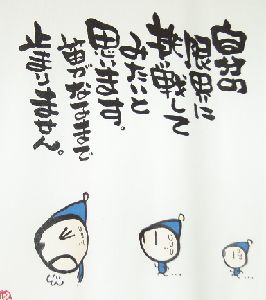 自分の
限界に
挑戦して
みたいと
思います。
笛がなるまで
止まりません。